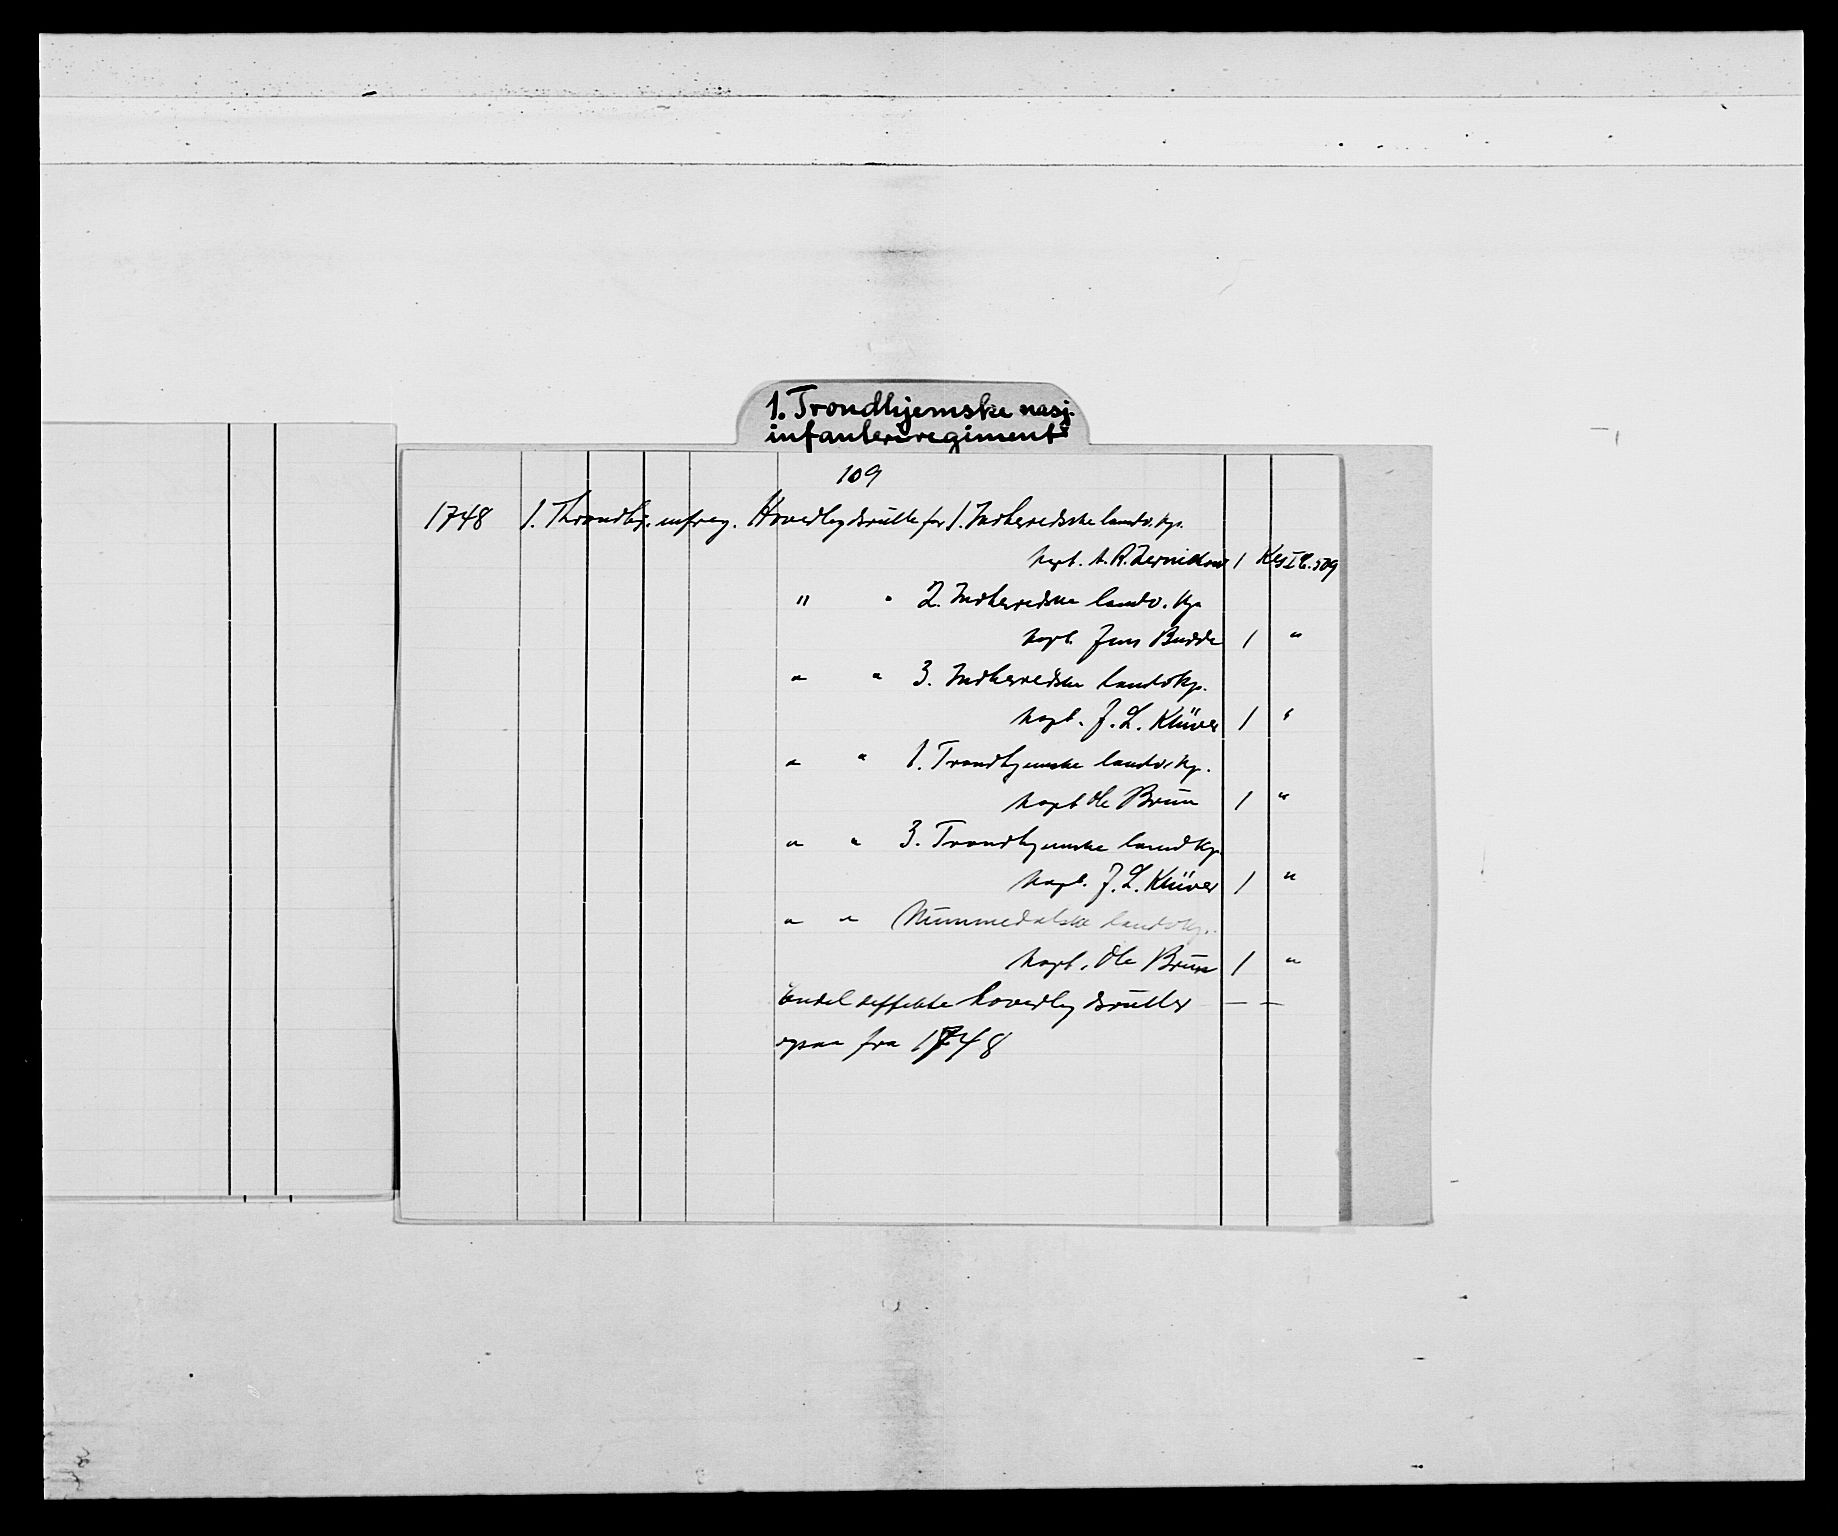 1. Trondhjemske nasj.
infanteriregiment
109
1748 1. Throndhj. infreg. Hovedlegdsrulle for 1. Inderedske landv. kp.
kapt. A. R. 1 Kcs I C. 509
" " 2. Inderedske landv. kp.
kapt. Jens Budde 1 "
" " 3. Inderedske landvkp.
kapt. J. L. Klüver 1 "
" " 1. Trondhjemske landv.kp.
kapt Ole Brun 1 "
" " 3. Trondhjemske landkp.
kapt. J. L. Klüver 1 "
" " Nummedalske landvkp.
kapt. Ole Brun 1 "
Endel deffekte hovedlegdsruller — —
ogsaa fra 1748